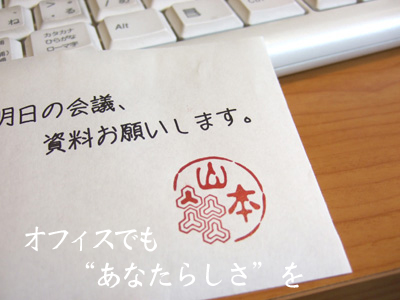 カタカナ
ひらがな
ローマ字
明日の会議、
資料お願いします。
山本
オフィスでも
“あなたらしさ”を